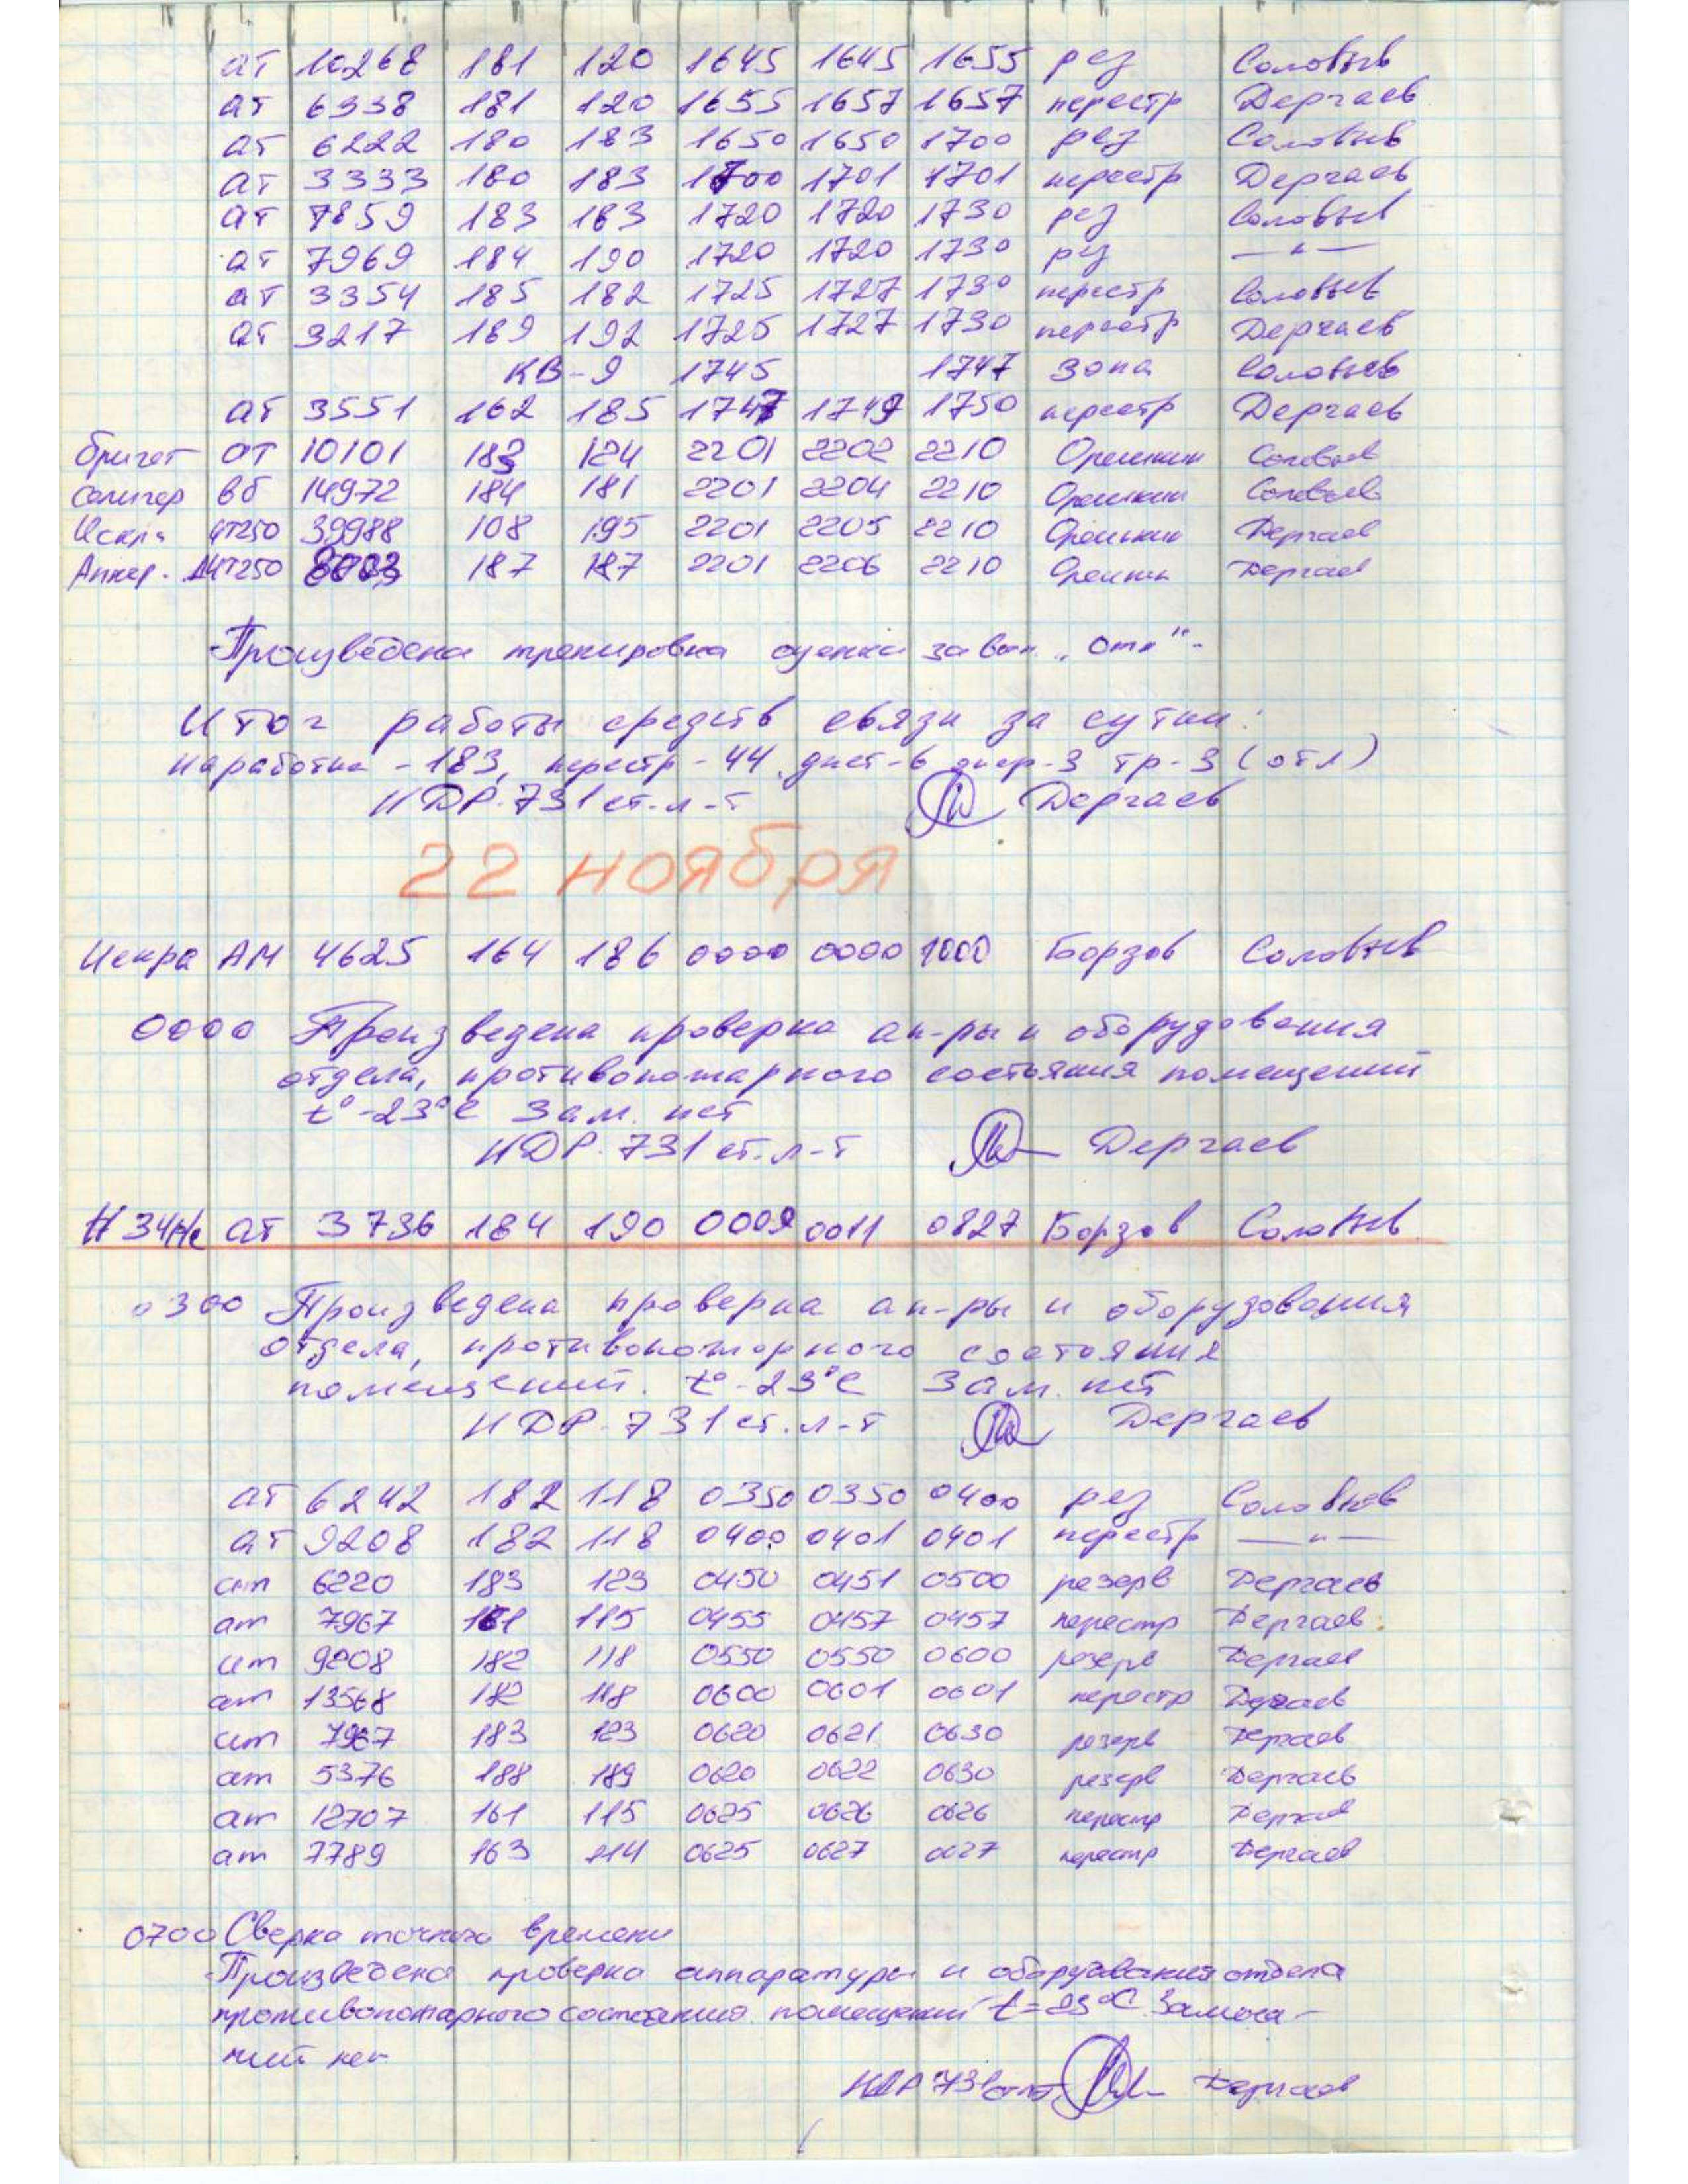 ат 10268 181 120 1645 1645 1655 рез Соловьев
ат 6338 181 120 1655 1657 1657 перестр Дергаев
ат 6222 180 183 1650 1650 1700 рез Соловьев
ат 3333 180 183 1700 1701 1701 перестр Дергаев
ат 7859 183 183 1720 1720 1730 рез Соловьев
ат 7969 184 190 1720 1720 1730 рез —"—
ат 3354 185 182 1725 1727 1730 перестр Соловьев
ат 3217 189 192 1725 1727 1730 перестр Дергаев
КВ-9 1745 1747 зона Соловьев
ат 3551 162 185 1747 1749 1750 перестр Дергаев
от 10101 183 124 2201 2202 2210 Орешкин Соловьев
Селигер вб 14972 184 181 2201 2204 2210 Орешкин Соловьев
Искра чт250 39988 108 195 2201 2205 2210 Орешкин Дергаев
чт250 187 187 2201 2206 2210 Орешкин Дергаев
Произведена тренировка оценка за вып. „отл"-
Итог работы средств связи за сутки:
наработка - 183, перестр - 44, дист-6 тр-3 (отл)
НДР-731 ст. л-т Дергаев
22 ноября
Искра АМ 4625 164 186 0000 0000 1000 Борзов Соловьев
0000 Произведена проверка ап-ры и оборудования
отдела, противопожарного состояния помещений
t°-23°С Зам. нет
НДР-731 ст. л-т Дергаев
ат 3736 184 190 0009 0011 0827 Борзов Соловьев
0300 Произведена проверка ап-ры и оборудования
отдела, противопожарного состояния
помещений. t°-23°С Зам. нет
НДР-731 ст. л-т Дергаев
ат 6242 182 118 0350 0350 0400 рез Соловьев
ат 9208 182 118 0400 0401 0401 перестр —"—
ат 6220 183 123 0450 0451 0500 резерв Дергаев
ат 7967 161 115 0455 0457 0457 перестр Дергаев
ат 9208 182 118 0550 0550 0600 резерв Дергаев
ат 13568 182 118 0600 0601 0601 перестр Дергаев
ат 7967 183 123 0620 0621 0630 резерв Дергаев
ат 5376 188 189 0620 0622 0630 резерв Дергаев
ат 12707 161 115 0625 0626 0626 перестр Дергаев
ат 7789 163 114 0625 0627 0627 перестр Дергаев
0700 Сверка точного времени
Произведена проверка аппаратуры и оборудования отдела
противопожарного состояния помещений t=23°С Замеча-
ний нет
НДР 731 ст л-т Дергаев